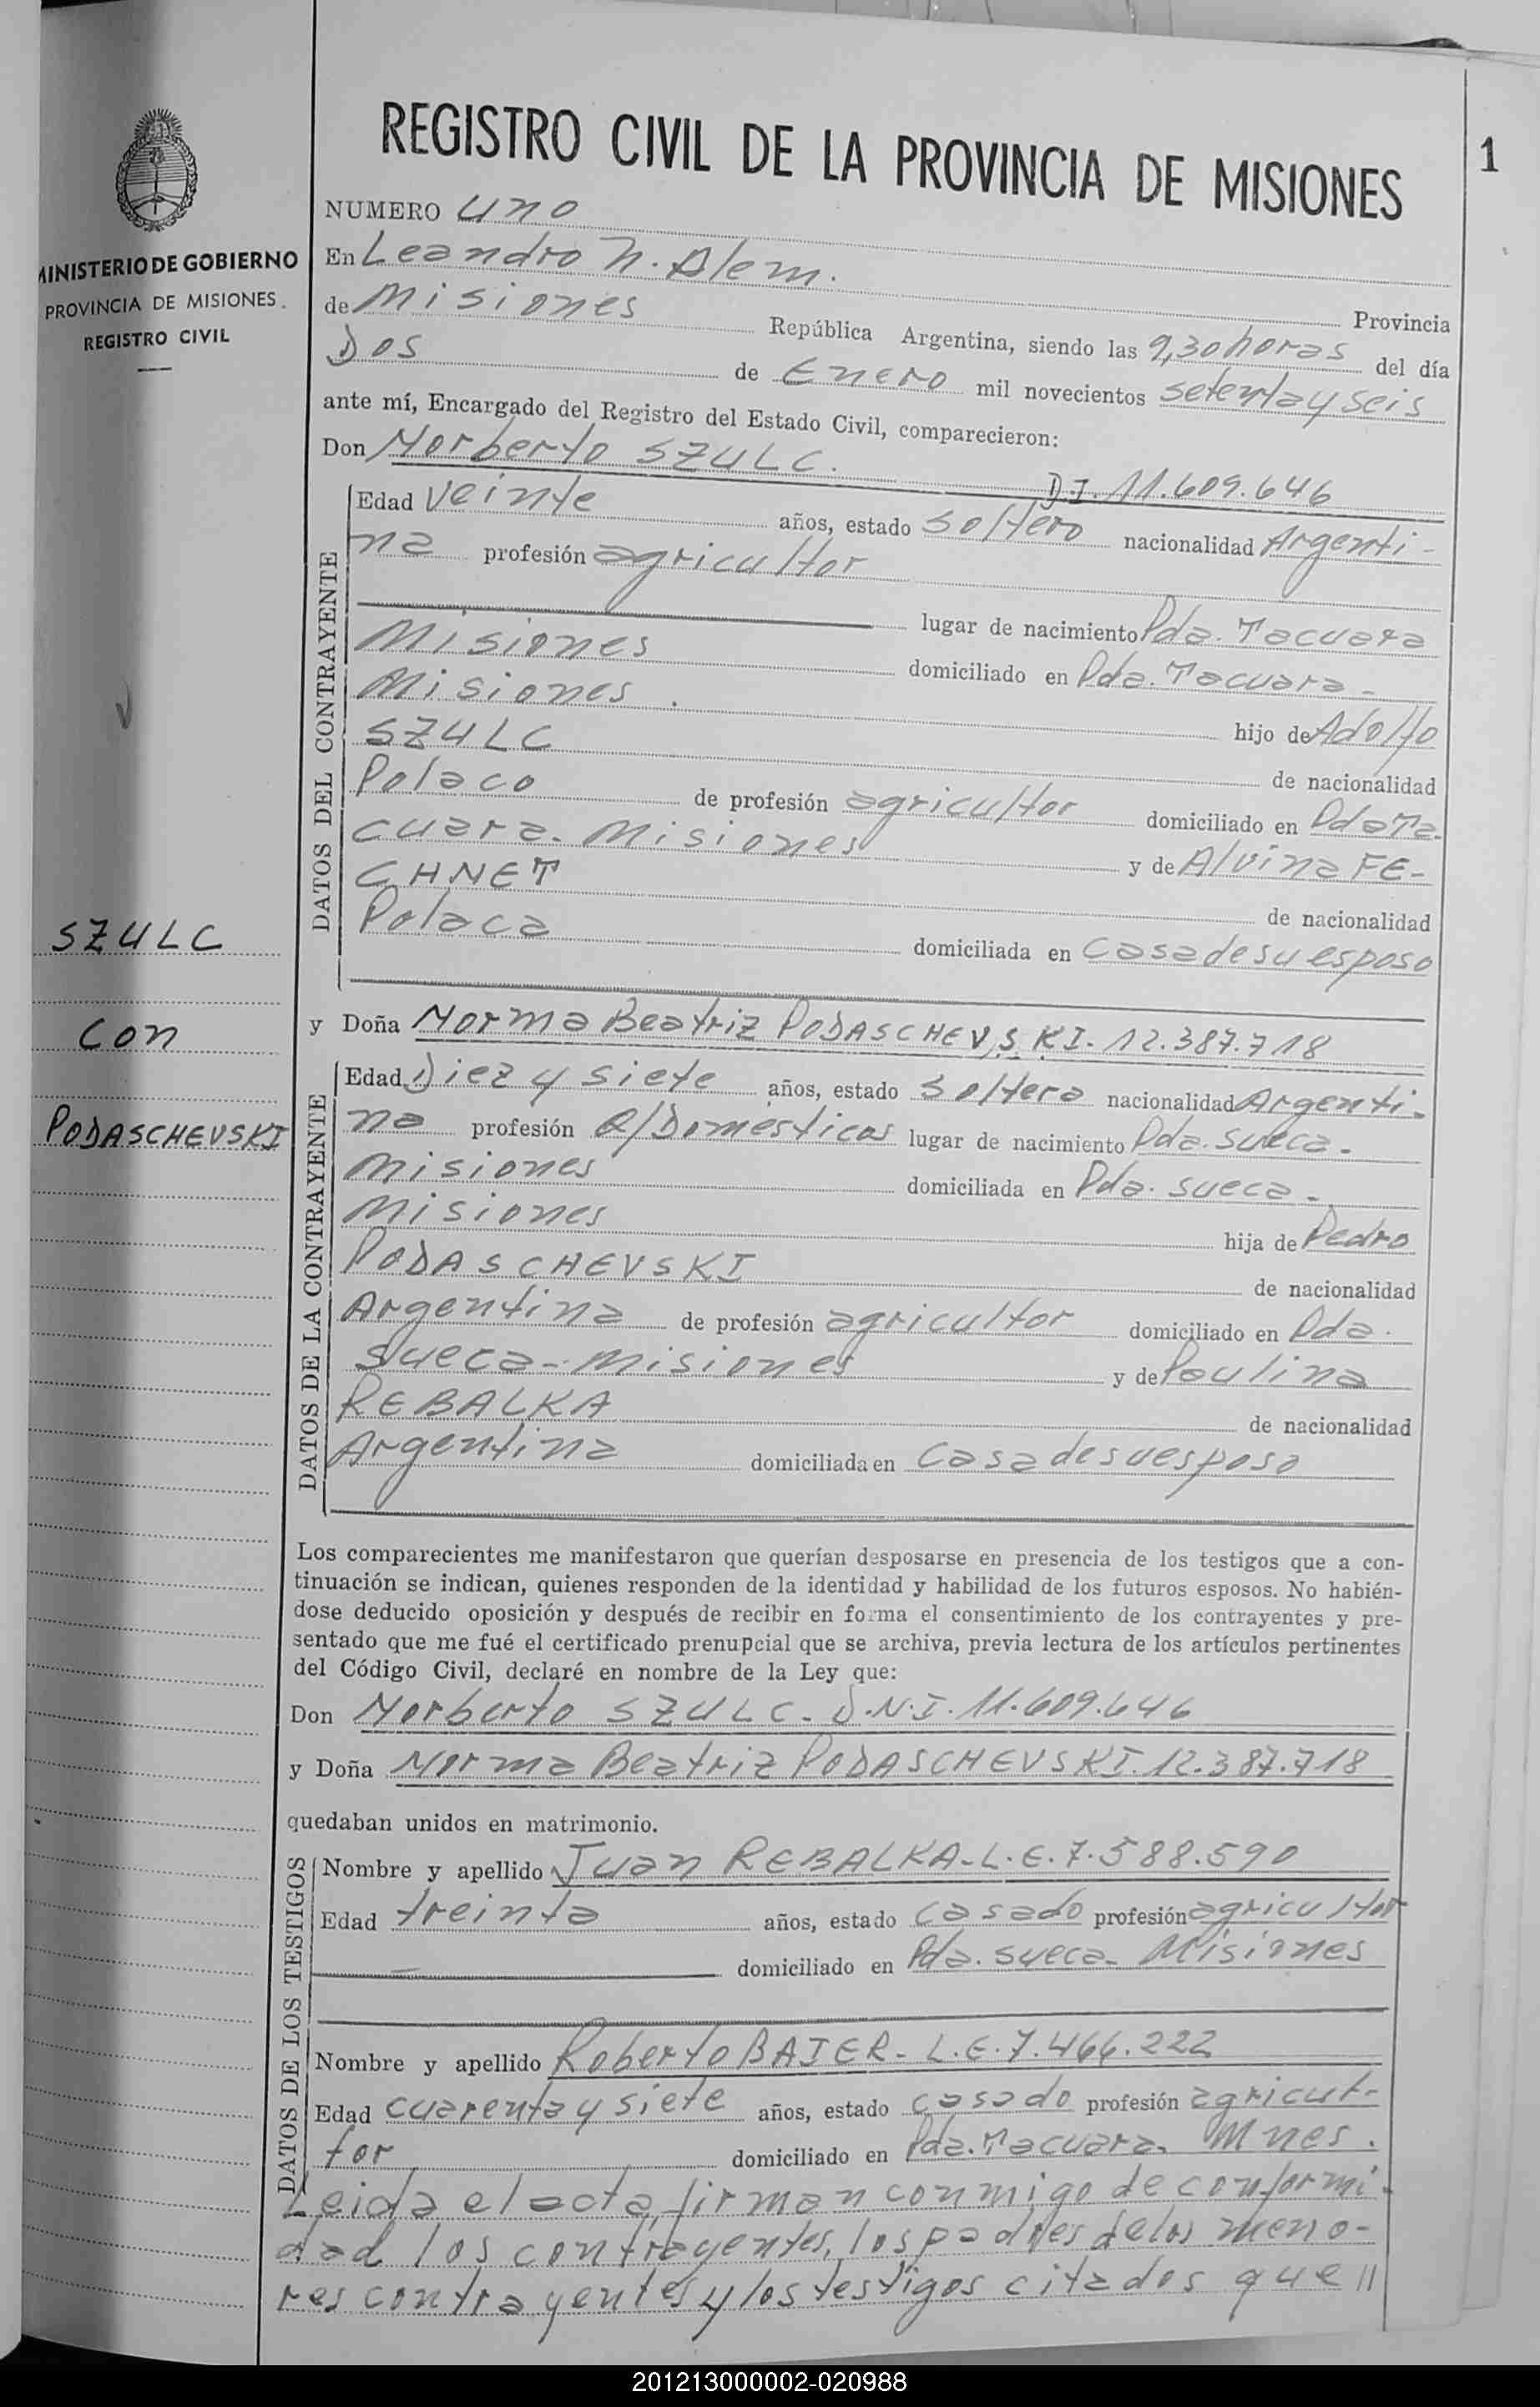 1
REGISTRO CIVIL DE LA PROVINCIA DE MISIONES
MINISTERIO DE GOBIERNO
PROVINCIA DE MISIONES
REGISTRO CIVIL
SZULC
con
PODASCHEVSKI
NUMERO uno
En Leandro N. Alem.
Provincia
de Misiones República Argentina, siendo las 9,30 horas del día
Dos de Enero mil novecientos setenta y seis
ante mí, Encargado del Registro del Estado Civil, comparecieron:
Don Norberto SZULC. D.I. 11.609.646
DATOS DEL CONTRAYENTE
Edad veinte años, estado soltero nacionalidad Argenti-
na profesión agricultor
lugar de nacimiento Pda. Tacuara
Misiones domiciliado en Pda. Tacuara-
Misiones. hijo de Adolfo
SZULC de nacionalidad
Polaco de profesión agricultor domiciliado en Pda Ta-
cuara-Misiones y de Alvina FE-
CHNET de nacionalidad
Polaca domiciliada en casa de su esposo
y Doña Norma Beatriz PODASCHEVSKI-12.387.718
DATOS DE LA CONTRAYENTE
Edad Diez y siete años, estado soltera nacionalidad Argenti-
na profesión Q/Domésticos lugar de nacimiento Pda. Sueca-
Misiones domiciliada en Pda. Sueca-
Misiones hija de Pedro
PODASCHEVSKI de nacionalidad
Argentina de profesión agricultor domiciliado en Pda.
Sueca-Misiones y de Paulina
REBALKA de nacionalidad
Argentina domiciliada en casa de su esposo
Los comparecientes me manifestaron que querían desposarse en presencia de los testigos que a con-
tinuación se indican, quienes responden de la identidad y habilidad de los futuros esposos. No habién-
dose deducido oposición y después de recibir en forma el consentimiento de los contrayentes y pre-
sentado que me fué el certificado prenupcial que se archiva, previa lectura de los artículos pertinentes
del Código Civil, declaré en nombre de la Ley que:
Don Norberto SZULC-D.N.I. 11.609.646
y Doña Norma Beatriz PODASCHEVSKI-12.387.718
quedaban unidos en matrimonio.
DATOS DE LOS TESTIGOS
Nombre y apellido Juan REBALKA-L.E.7.588.590
Edad treinta años, estado casado profesión agricultor
domiciliado en Pda. Sueca-Misiones
Nombre y apellido Roberto BAJER-L.E.7.466.222
Edad cuarenta y siete años, estado casado profesión agricul-
tor domiciliado en Pda. Tacuara-Mnes.
Leida el acta, firman conmigo de conformi-
dad los contrayentes, los padres de los meno-
res contrayentes y los testigos citados que //
201213000002-020988